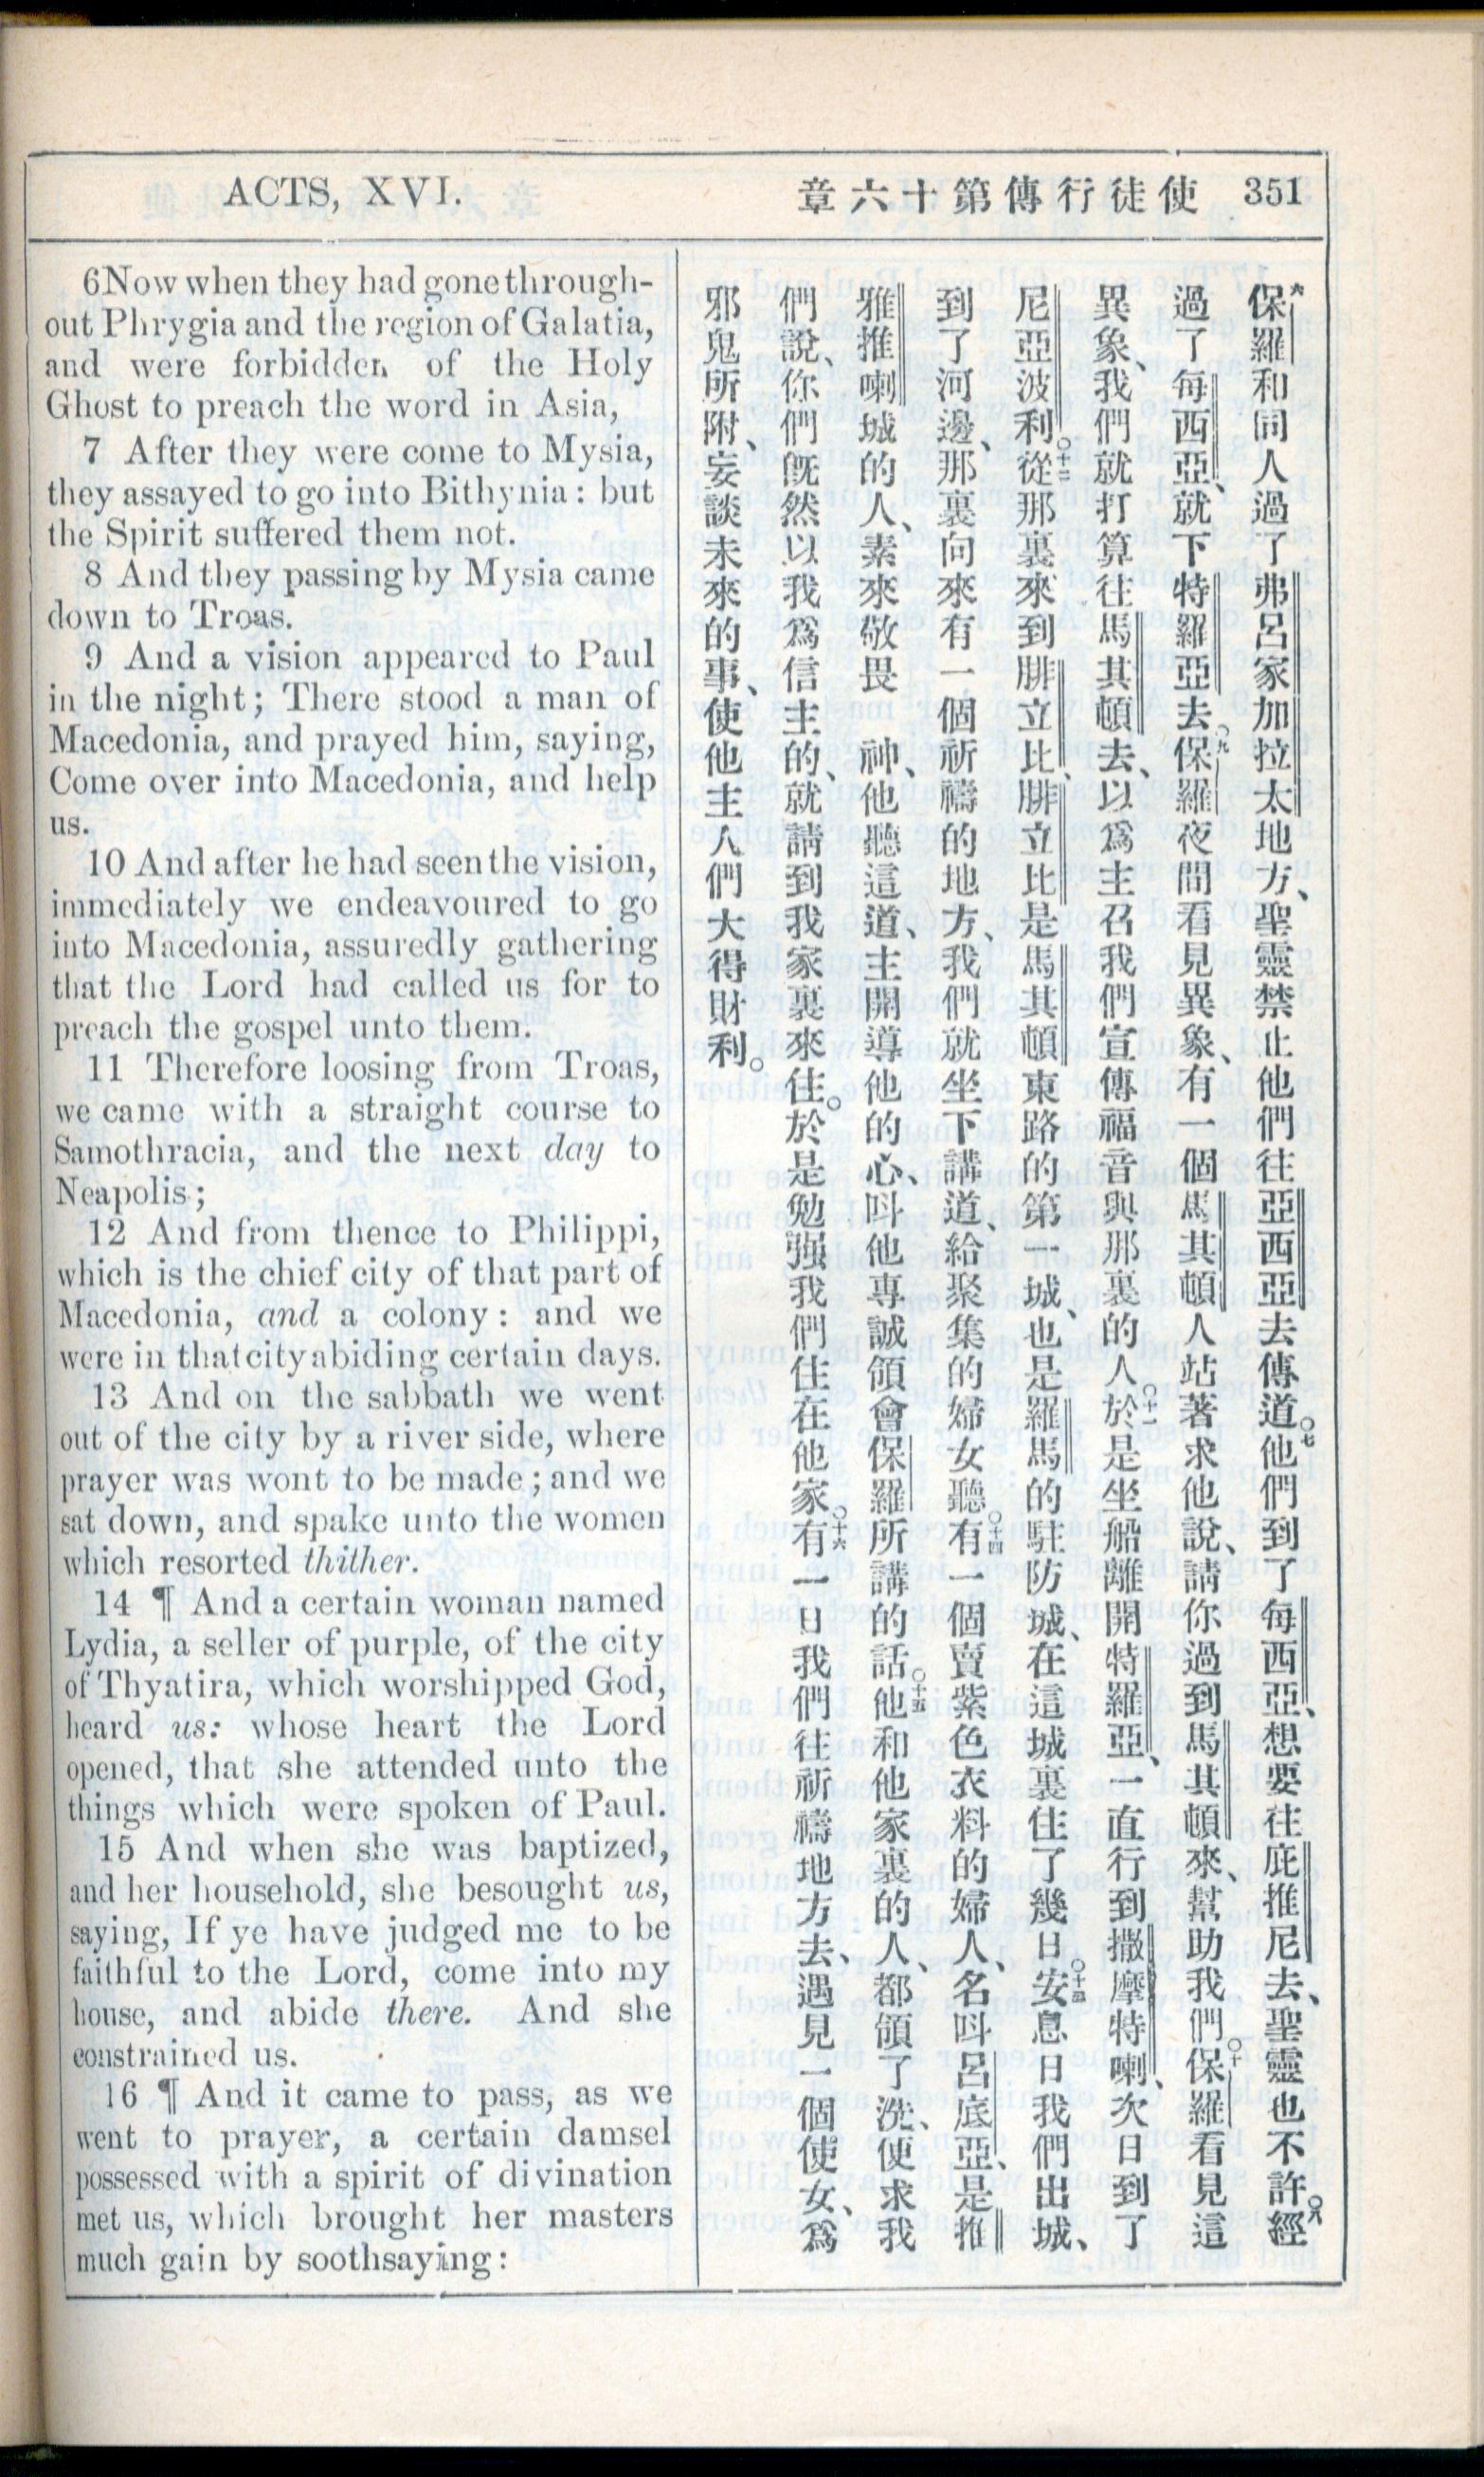 ACTS, XVI.
章六十第傳行徒使 351
6Now when they had gone through-
out Phrygia and the region of Galatia,
and were forbidden of the Holy
Ghost to preach the word in Asia,
7 After they were come to Mysia,
they assayed to go into Bithynia: but
the Spirit suffered them not.
8 And they passing by Mysia came
down to Troas.
9 And a vision appeared to Paul
in the night; There stood a man of
Macedonia, and prayed him, saying,
Come over into Macedonia, and help
us.
10 And after he had seen the vision,
immediately we endeavoured to go
into Macedonia, assuredly gathering
that the Lord had called us for to
preach the gospel unto them.
11 Therefore loosing from Troas,
we came with a straight course to
Samothracia, and the next day to
Neapolis;
12 And from thence to Philippi,
which is the chief city of that part of
Macedonia, and a colony: and we
were in that city abiding certain days.
13 And on the sabbath we went
out of the city by a river side, where
prayer was wont to be made; and we
sat down, and spake unto the women
which resorted thither.
14 ¶ And a certain woman named
Lydia, a seller of purple, of the city
of Thyatira, which worshipped God,
heard us: whose heart the Lord
opened, that she attended unto the
things which were spoken of Paul.
15 And when she was baptized,
and her household, she besought us,
saying, If ye have judged me to be
faithful to the Lord, come into my
house, and abide there. And she
constrained us.
16 ¶ And it came to pass, as we
went to prayer, a certain damsel
possessed with a spirit of divination
met us, which brought her masters
much gain by soothsaying:
六保羅和同人過了弗呂家加拉太地方、聖靈禁止他們往亞西亞去傳道。七他們到了每西亞、想要往庇推尼去、聖靈也不許。八經
過了每西亞就下特羅亞去。九保羅夜間看見異象、有一個馬其頓人站著求他說、請你過到馬其頓來、幫助我們。十保羅看見這
異象、我們就打算往馬其頓去、以爲主召我們宣傳福音與那裏的人。十一於是坐船離開特羅亞、一直行到撒摩特喇、次日到了
尼亞波利。十二從那裏來到腓立比、腓立比是馬其頓東路的第一城、也是羅馬的駐防城、在這城裏住了幾日。十三安息日我們出城、
到了河邊、那裏向來有一個祈禱的地方、我們就坐下講道、給聚集的婦女聽。十四有一個賣紫色衣料的婦人、名呌呂底亞、是推
雅推喇城的人、素來敬畏 神、他聽這道、主開導他的心、呌他專誠領會保羅所講的話。十五他和他家裏的人、都領了洗、便求我
們說、你們旣然以我爲信主的、就請到我家裏來住。於是勉强我們住在他家。十六有一日我們往祈禱地方去、遇見一個使女、爲
邪鬼所附、妄談未來的事、使他主人們大得財利。